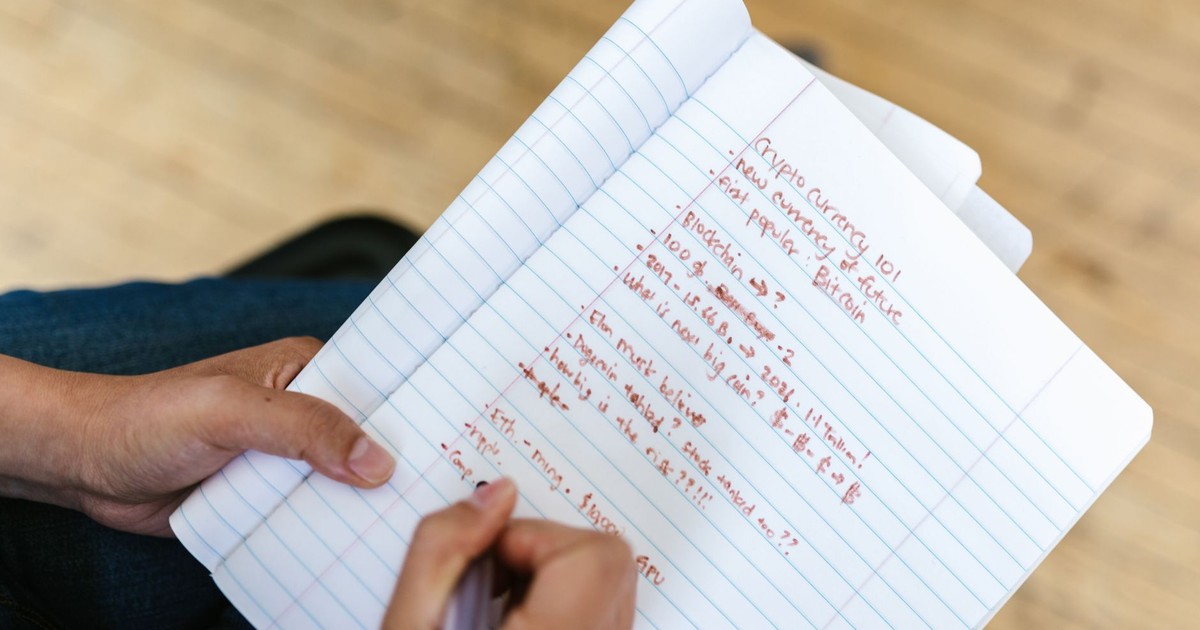 Crypto currency 101
- new currency of future
- first popular : Bitcoin
- Blockchain → ?
- 100 $ - 2
- 2017 - 15.66 B. → 2021. 1.1 Trillion!
- What is next big coin? $ - $ - $ → $
- Elon musk believes
- Dogecoin tanked? Stock tanked too??
- how big is the risk??!!!
- Eth. - ming. $1,000 GPU
- ripple.
- Comp.